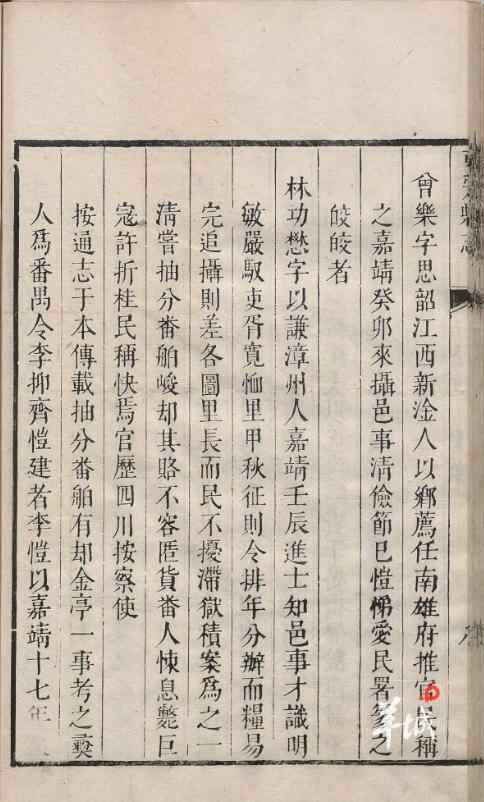 曾樂字思韶江西新淦人以鄉薦任南雄府推官民稱
之嘉靖癸卯來攝邑事清儉節巳愷悌愛民署篆之
皎皎者
林功懋字以謙漳州人嘉靖壬辰進士知邑事才識明
敏嚴馭吏胥寬恤里甲秋征則令排年分辦而糧易
完追攝則差各圖里長而民不擾滯獄積案為之一
清嘗抽分番舶峻却其賂不容匿貨番人悚息斃巨
寇許折桂民稱快焉官歷四川按察使
按通志于本傳載抽分番舶有却金亭一事考之莞
人為番禺令李抑齊愷建者李愷以嘉靖十七年
羊城